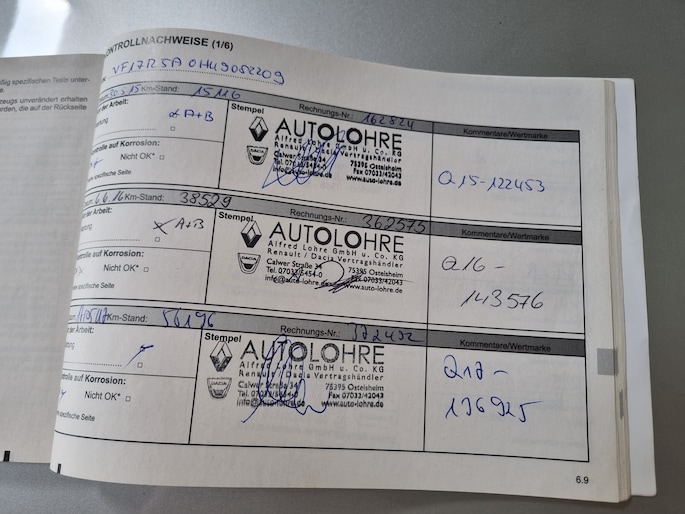 ßig spezifischen Teile unter-
zeugs unverändert erhalten
rden, die auf der Rückseite
ONTROLLNACHWEISE (1/6)
VF17R5A0H49052209
30.5.15 Km-Stand: 15116 Rechnungs-Nr.: 162824
der Arbeit: A+B
Stempel
Kommentare/Wertmarke
AUTOLOHRE
Alfred Lohre GmbH u. Co. KG
Renault / Dacia Vertragshändler
DACIA
Calwer Straße 34 75395 Ostelsheim
Tel. 07033/5454-0 Fax 07033/42043
info@auto-lohre.de www.auto-lohre.de
ntrolle auf Korrosion:
Nicht OK*
he spezifische Seite
Q15-122453
6.6.16 Km-Stand: 38529 Rechnungs-Nr.: 262575
der Arbeit: A+B
Stempel
Kommentare/Wertmarke
AUTOLOHRE
Alfred Lohre GmbH u. Co. KG
Renault / Dacia Vertragshändler
DACIA
Calwer Straße 34 75395 Ostelsheim
Tel. 07033/5454-0 Fax 07033/42043
info@auto-lohre.de www.auto-lohre.de
ntrolle auf Korrosion:
Nicht OK*
he spezifische Seite
Q16-
143576
Km-Stand: 56196 Rechnungs-Nr.: 372432
der Arbeit:
Stempel
Kommentare/Wertmarke
AUTOLOHRE
Alfred Lohre GmbH u. Co. KG
Renault / Dacia Vertragshändler
DACIA
Calwer Straße 34 75395 Ostelsheim
Tel. 07033/5454-0 Fax 07033/42043
info@auto-lohre.de www.auto-lohre.de
ntrolle auf Korrosion:
Nicht OK*
he spezifische Seite
Q17-
196925
6.9